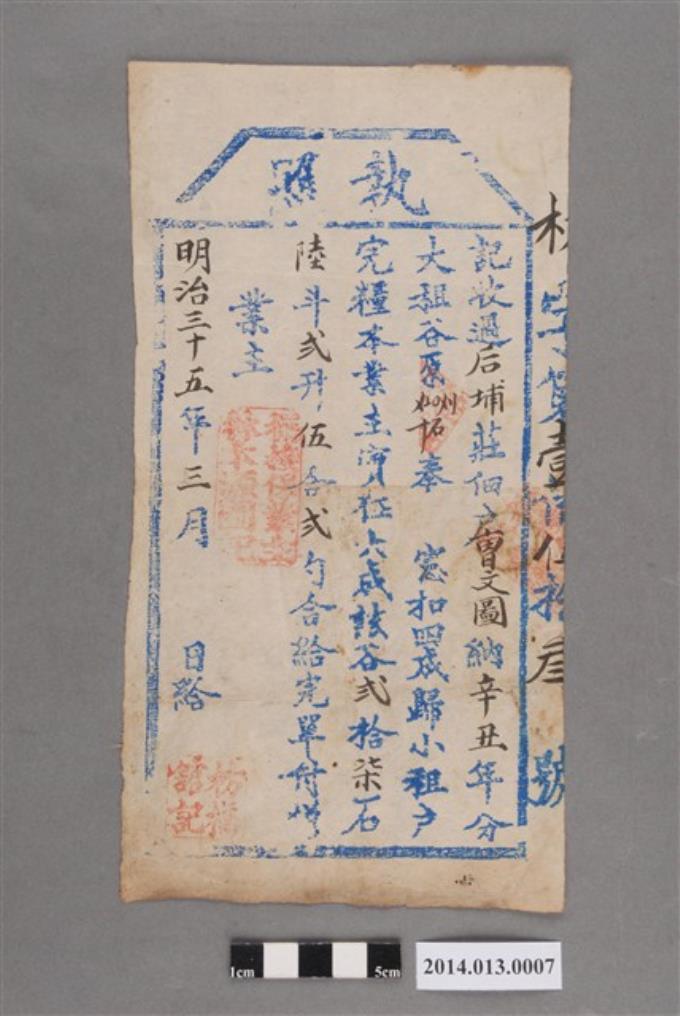 執照
字第壹佰伍拾叁號
記收過后埔莊佃戶曾文圖納辛丑年分
大租谷原奉憲扣四成歸小租戶
完糧本業主實征六成該谷弍拾柒石
陸斗弍升伍合弍勺合給完單付炤
業主
明治三十五年三月 日給
枋橋
舘記
1cm 5cm
2014.013.0007